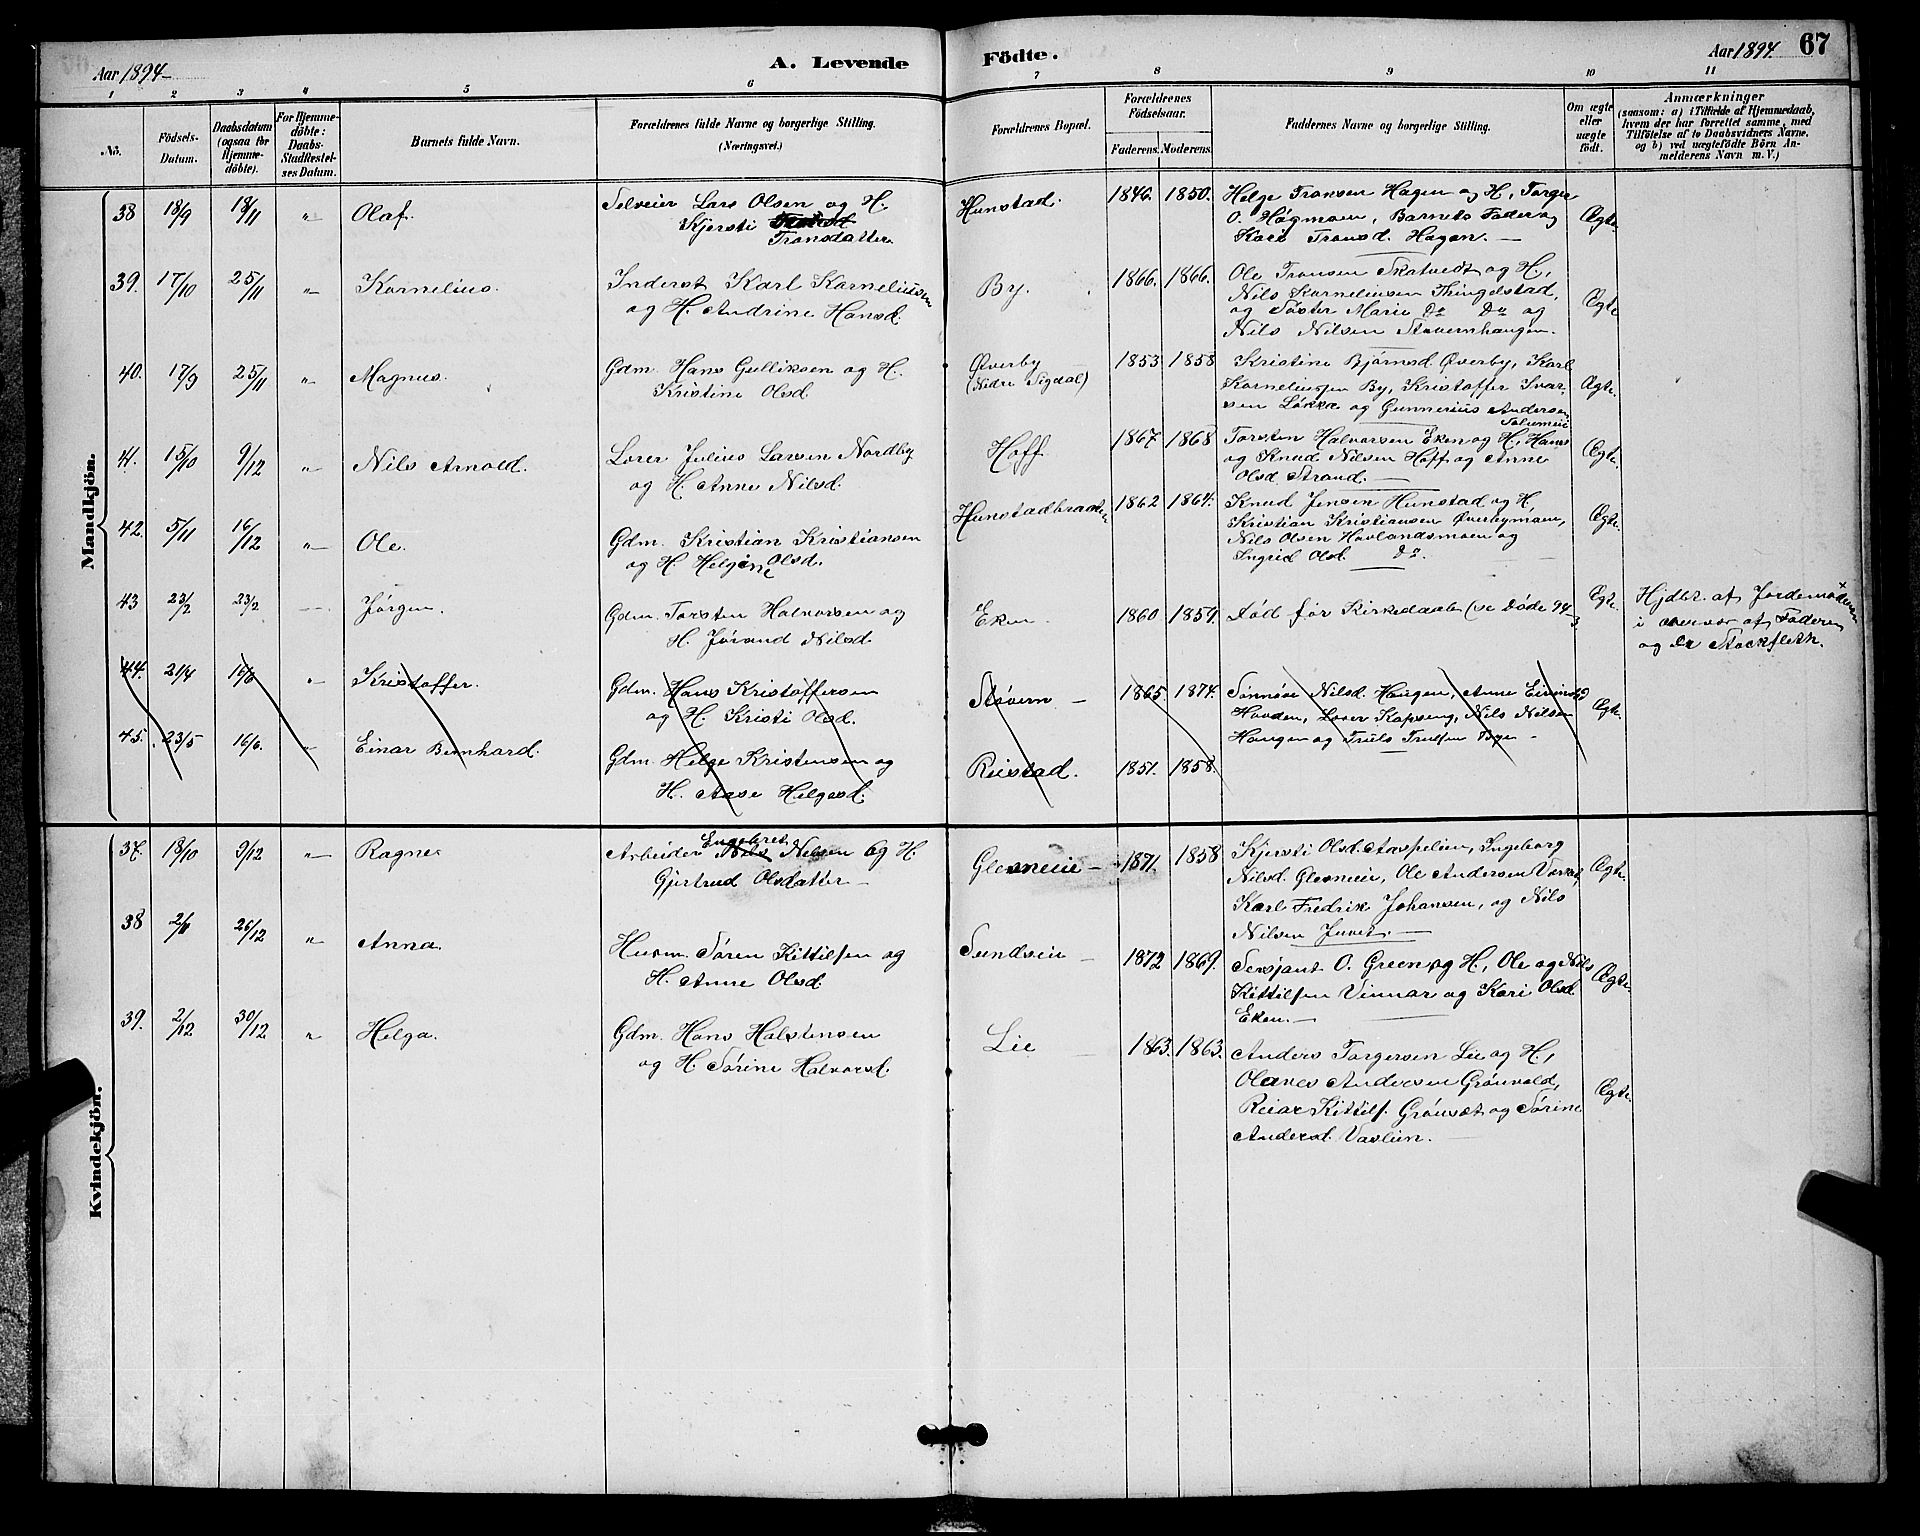 Aar 1894 A. Levende Födte. Aar 1894. 67
1 2 3 4 5 6 7 8 9 10 11
No.
Födsels-Datum.
Daabsdatum (ogsaa for Hjemmedøbte).
For Hjemmedøbte: Daabs-Stadfæstelses Datum.
Barnets fulde Navn.
Forældrenes fulde Navne og borgerlige Stilling.
(Næringsvei.)
Forældrenes Bopæl.
Forældrenes Födselsaar.
Faderens. Moderens.
Faddernes Navne og borgerlige Stilling.
Om ægte eller uægte født.
Anmærkninger
(saasom: a) i Tilfælde af Hjemmedaab, hvem der har forrettet samme, med Tilföielse af to Daabsvidners Navne, og b) ved uægtefödte Börn Anmelderens Navn m. V.)
Mandkjön.
38 18/9 18/11 " Olaf. Selveier Lars Olsen og H. Hunstad. 1846. 1850. Helge Tronsen Hagen og H, Torger
Kjersti Tronsdatter O. Høgmoen, Barnets Fader og Ægte
Kari Tronsd. Hagen. —
39. 17/10 25/11 " Kornelius. Inderst Karl Korneliussen By. 1866. 1866. Ole Tronsen Skatvedt og H,
og H. Andrine Hansd. Nils Korneliusen Thingelstad, Ægte
og Søster Marie Do Do og
Nils Nilsen Støvernhaugen.
40. 17/9 25/11 " Magnus. Gdm. Hans Gulliksen og H. Øverby 1853 1858 Kristine Bjørnsd Øverby, Karl
Kristine Olsd. (Nedre Sigdal) Korneliussen By, Kristoffer Ivar- Ægte.
sen Løkka og Gunnerius Andersen
Solumeie
41. 15/10 9/12 " Nils Arnold. Lærer Julius Larsen Nordby Hoff. 1867. 1868 Torsten Halvorsen Eken og H, Hans
og H. Anne Nilsd. og Knud Nilsen Hoff og Anne Ægte.
Olsd. Strand. —
42. 5/11 16/12 " Ole. Gdm. Kristian Kristiansen Hunstadbraaten 1862 1864. Knud Jensen Hunstad og H,
og H. Helgine Olsd. Kristian Kristiansen Øverbymoen, Ægte.
Nils Olsen Hovlandsmoen og
Ingrid Olsd. Do.
43 23/2 23/2 Jørgen. Gdm. Torsten Halvorsen og Eken. 1860 1859. Død før Kirkedaab (se Døde 94 Ægte. Hjdbt. af Jordemoderen
H. Jørand Nilsd. i overvær af Faderen
og Dr Stockfleth.
44. 21/4 16/6 " Kristoffer. Gdm. Hans Kristoffersen Støvern — 1865. 1874. Sønnøve Nilsd. Haugen, Anne Eivindsd
og H. Kristi Olsd. Hovden, Lærer Kapseng, Nils Nilsen Ægte.
Haugen og Truls Trulsen Bye —
45. 23/5 16/6. " Einar Bernhard. Gdm. Helge Kristensen og Reistad. 1851. 1858.
H. Aase Helgesd.
Kvindekjön.
37. 18/10 9/12 " Ragne Arbeider Engebret Nilsen og H. Glesneeie — 1871. 1858 Kjersti Olsd. Aaspeleien, Ingeborg
Gjertrud Olsdatter — Nilsd. Glesneeie, Ole Andersen Ægte.
Karl Fredrik Johansen, og Nils
Nilsen Juvet. —
38 2/6 26/12 " Anna. Husm. Søren Kittilsen og Sundseie — 1872 1869. Sersjant O. Green og H, Ole og Nils
H. Anne Olsd. Kittilsen Vinnar og Kari Olsd. Ægte.
Eken. —
39. 2/12 30/12 " Helga. Gdm. Hans Halstensen Lie — 1863. 1863. Anders Torgersen Lie og H,
og H. Sørine Halvorsd. Olanes Andersen Grønvold,
Reiar Kittils. Grønset og Sørine Ægte.
Andersd. Vaslien. —